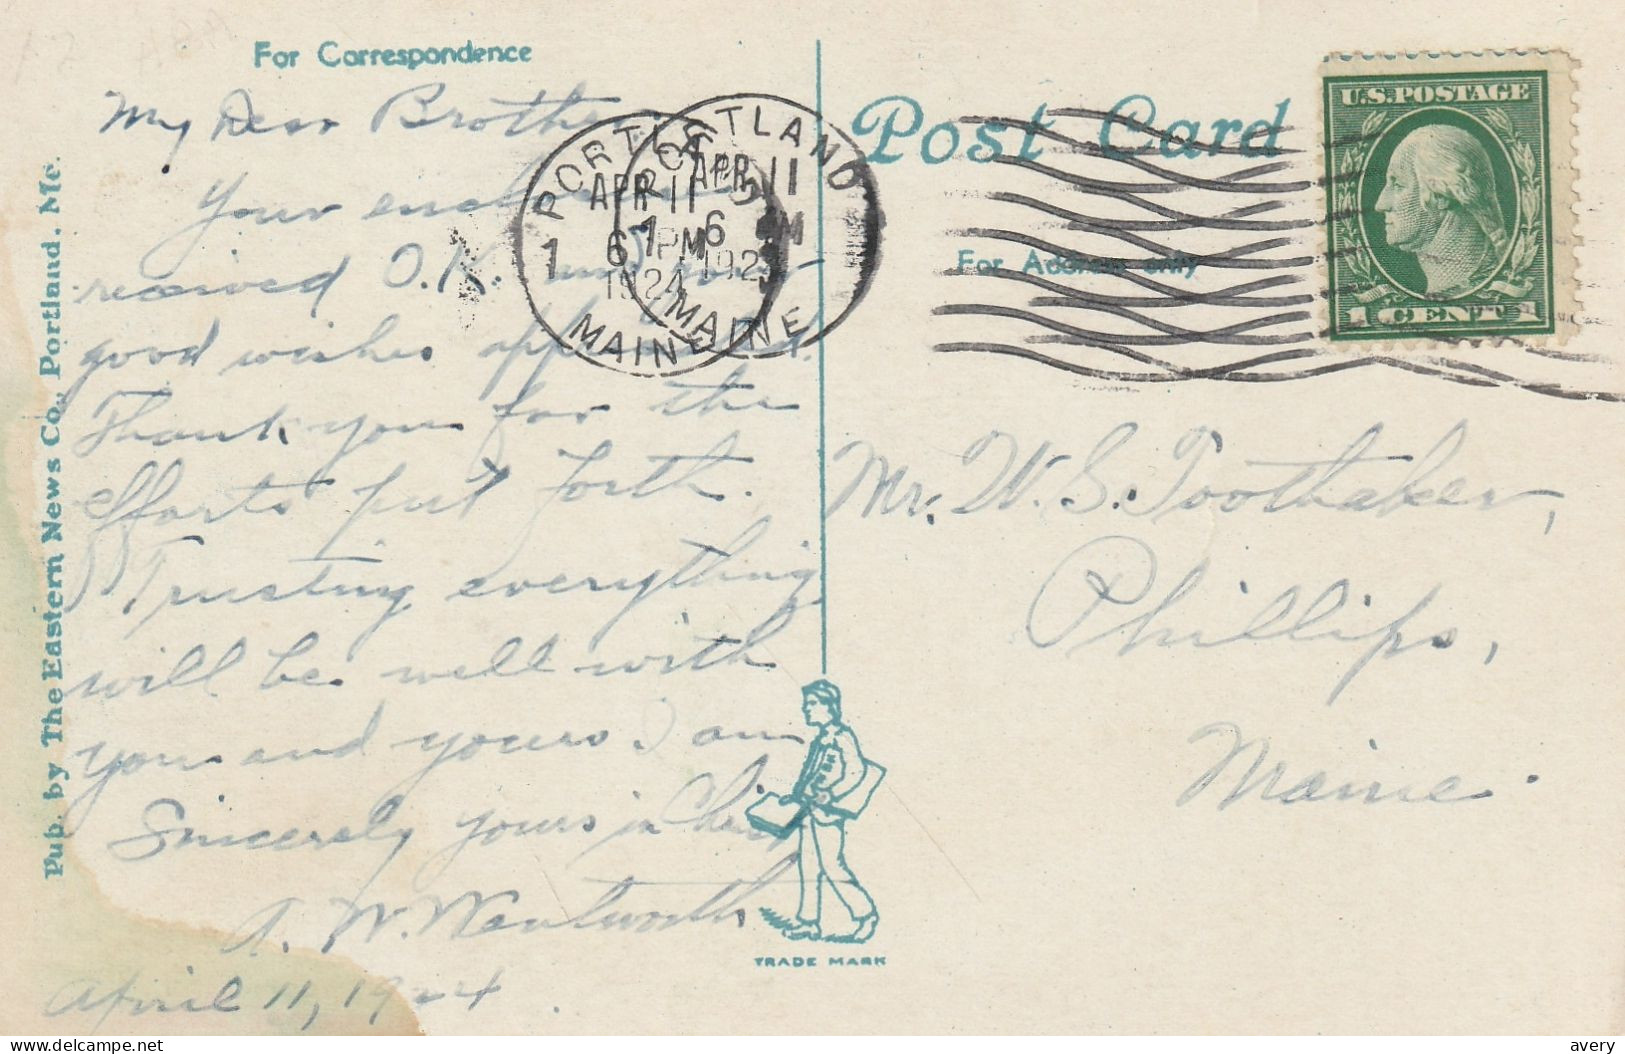 For Correspondence
My Dear Brother
Your
received O.K. and your
good wishes
Thank you for the
efforts put forth.
Trusting everything
will be well with
you and yours. I am
Sincerely yours in Christ
A. W. Wentworth
April 11, 1924
Pub. by The Eastern News Co., Portland, Me.
PORTLAND
APR 11
6 PM
1924
MAINE
PORTLAND
APR 11
6 PM
192
MAINE
1
1
Post Card
For Address only
U.S. POSTAGE
1 CENT 1
Mr. W. S. Toothaker,
Phillips,
Maine.
TRADE MARK
delcampe.net
avery